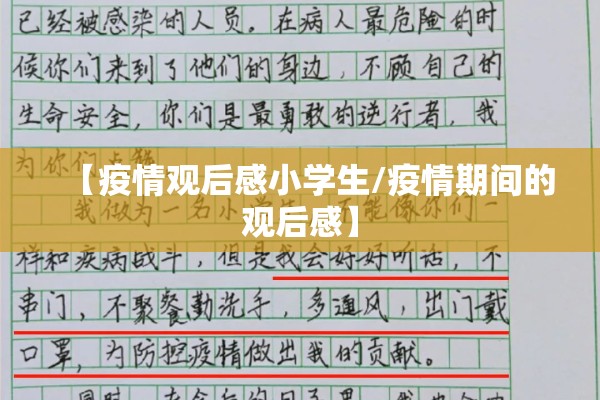 已经被感染的人员。在病人最危险的时
候你们来到了他们的身边，不顾自己的
生命安全，你们是最勇敢的逆行者，我
为你们点赞
【疫情观后感小学生/疫情期间的
观后感】
我做为一名小学 不能像你们一
样和疾病战斗，但是我会好好听话，不
串门，不聚餐勤洗手，多通风，出门戴
口罩，为防控疫情做出我的贡献。